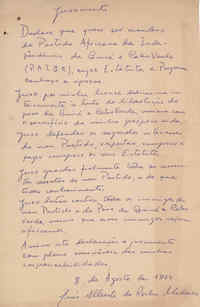 Juramento
Declaro que quero ser membro
do Partido Africano da Inde-
pendência da Guiné e Cabo Verde
(P.A.I.G.C.), cujos Estatutos e Programa
conheço e aprovo.
Juro por minha honra dedicar-me in-
teiramente à luta de libertação do
povo da Guiné e Cabo Verde, mesmo com
o sacrifício da minha própria vida.
Juro defender os sagrados interesses
do meu Partido, respeitar cumprir e
fazer cumprir os seus Estatutos.
Juro guardar fielmente todos os
segredos do meu Partido, de que
tenha conhecimento.
Juro lutar contra todos os inimigos do
meu Partido e do Povo da Guiné e Cabo
Verde, mesmo que esses inimigos sejam
africanos.
Assino esta declaração e juramento
com plena consciência das minhas
responsabilidades.
8 de Agosto de
José Alberto